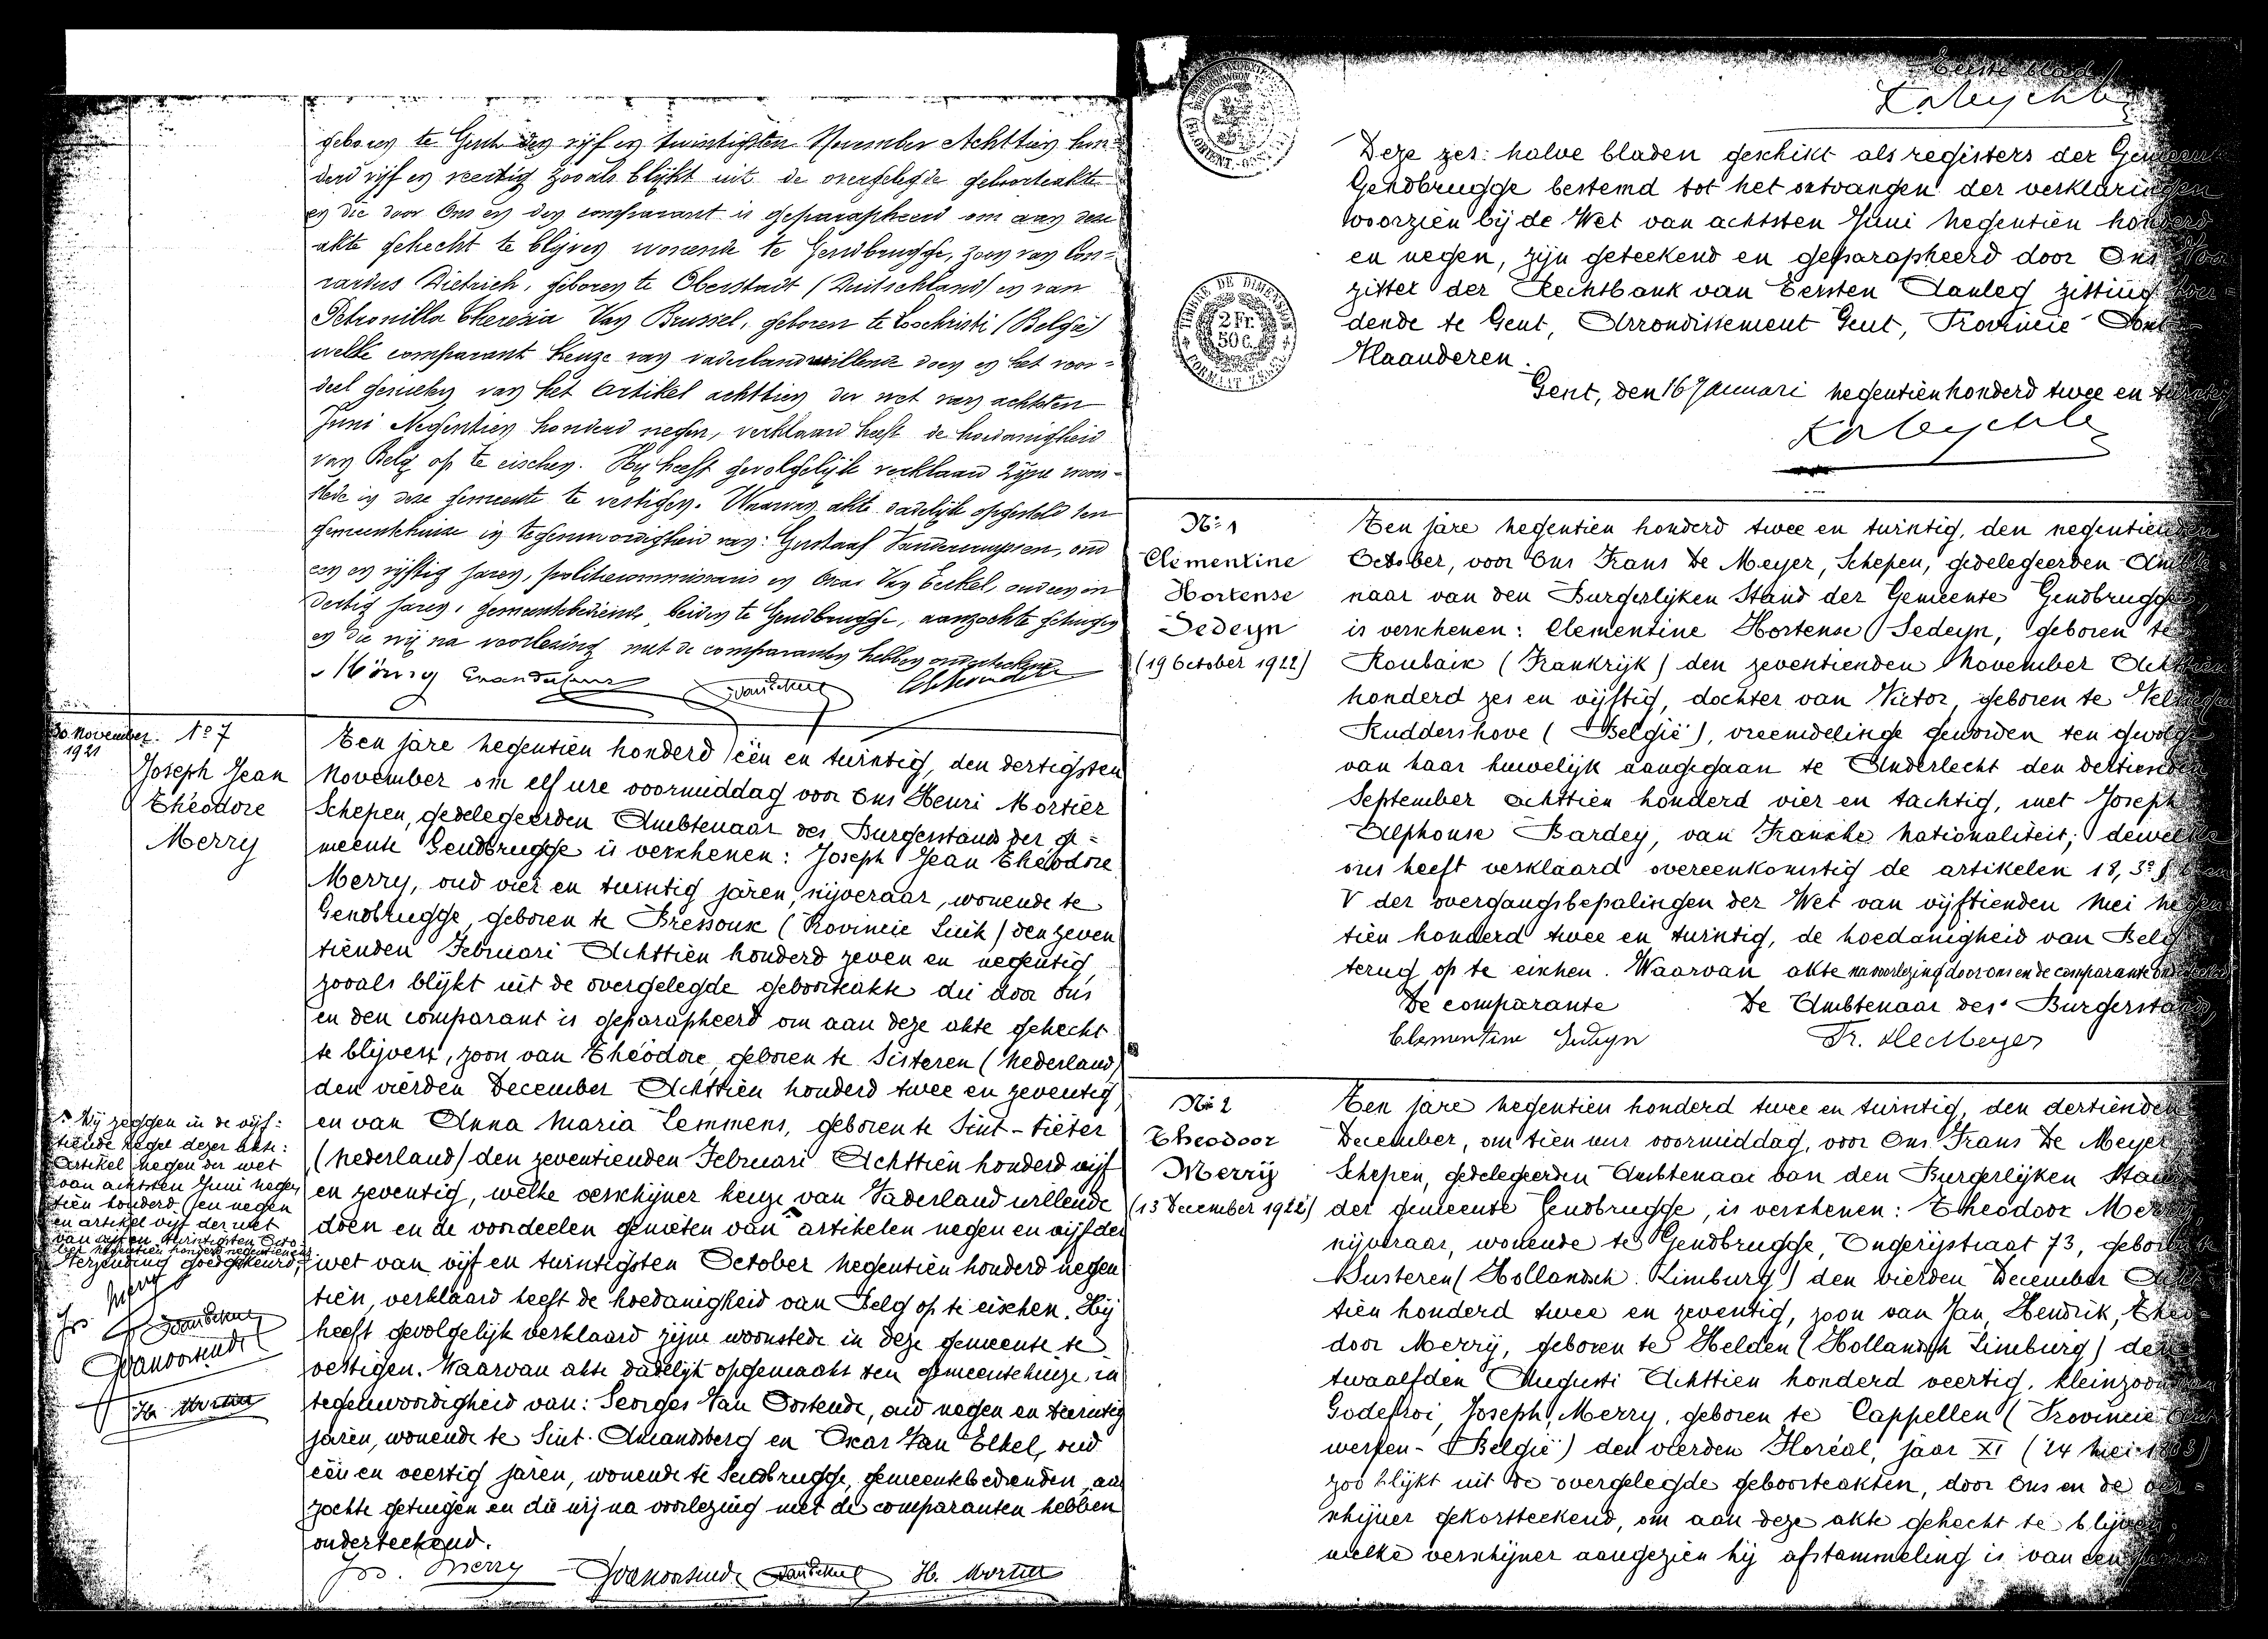 geboren te Gent den vijf en twintigsten November Achttien hon=
derd vijf en veertig zooals blijkt uit de overgelegde geboorteakte
en die door Ons en den comparant is geparapheerd om aan deze
akte gehecht te blijven wonende te Gendbrugge, zoon van Con=
rardus Dietrich, geboren te Oberstadt (Duitschland) en van
Petronilla Theresia Van Brussel, geboren te Loochristi (België)
welke comparant keuze van vaderland willende doen en het voor=
deel genieten van het Artikel achttien der wet van achtsten
Juni Negentien honderd negen, verklaard heeft de hoedanigheid
van Belg op te eischen. Hij heeft gevolgelijk verklaard zijne woon=
stede in deze gemeente te vestigen. Waarvan akte dadelijk opgesteld ten
gemeentehuize in tegenwoordigheid van: Gustaaf oud
en vijftig jaren, politiecommissaris en Oscar Van Eeckel, oud een en
dertig jaren, gemeentebediende, beiden te Gendbrugge, aanzochte getuigen
en die wij na voorlezing met de comparanten hebben onderteekend.
30 November
1921
No 7
Joseph Jean
Théodore
Merry
Ten jare negentien honderd één en twintig, den dertigsten
November om elf ure voormiddag voor Ons Henri Mortier
Schepen, gedelegeerden Ambtenaar des Burgerstands der ge=
meente Gendbrugge is verschenen: Joseph Jean Théodore
Merry, oud vier en twintig jaren, nijveraar, wonende te
Gendbrugge, geboren te Bressoux (Provincie Luik) den zeven
tienden Februari Achttien honderd zeven en negentig,
zooals blijkt uit de overgelegde geboorteakte die door Ons
en den comparant is geparapheerd om aan deze akte gehecht
te blijven, zoon van Théodore, geboren te Sisteren (Nederland)
den vierden December Achttien honderd twee en zeventig,
en van Anna Maria Lemmens, geboren te Sint-Pieter
(Nederland) den zeventienden Februari Achttien honderd vijf
en zeventig, welke verschijner keuze van Vaderland willende
doen en de voordeelen genieten van artikelen negen en vijf der
wet van vijf en twintigsten October negentien honderd negen
tien, verklaard heeft de hoedanigheid van Belg op te eischen. Hij
heeft gevolgelijk verklaard zijne woonstede in deze gemeente te
vestigen. Waarvan akte dadelijk opgemaakt ten gemeentehuize, in
tegenwoordigheid van: Georges Van Oostende, oud negen en twintig
jaren, wonende te Sint-Amandsberg en Oscar Van Eekel, oud
één en veertig jaren, wonende te Gendbrugge, gemeentebedienden, aan
zochte getuigen en die wij na voorlezing met de comparanten hebben
onderteekend.
Jos. Merry
H. Mortier
Wij zeggen in de vijf=
tiende regel dezer akte:
Artikel negen der wet
van achtsten Juni negen
tien honderd en negen
en artikel vijf der wet
van vijf en twintigsten Octo
ber negentien honderd negentien
Verzending goedgekeurd.
Jos Merry
H. Mortier
Eerste blad
2 Fr.
50 C.
Deze zes halve bladen geschikt als registers der Gemeente
Gendbrugge bestemd tot het ontvangen der verklaringen
voorzien bij de Wet van achtsten Juni negentien honderd
en negen, zijn geteekend en geparapheerd door Ons Voor
zitter der Rechtbank van Eersten Aanleg zitting hou=
dende te Gent, Arrondissement Gent, Provincie Oost
Vlaanderen.
Gent, den 16 Januari negentienhonderd twee en twintig
No 1
Clementine
Hortense
Sedeyn
(19 October 1922)
Ten jare negentien honderd twee en twintig, den negentienden
October, voor Ons Frans De Meyer, Schepen, gedelegeerden Ambte=
naar van den Burgerlijken Stand der Gemeente Gendbrugge,
is verschenen: Clementine Hortense Sedeyn, geboren te
Roubaix (Frankrijk) den zeventienden November Achttien
honderd zes en vijftig, dochter van Victor, geboren te Velsique
Ruddershove (België), vreemdelinge geworden ten gevolge
van haar huwelijk aangegaan te Anderlecht den dertienden
September achttien honderd vier en tachtig, met Joseph
Alphonse Bardey, van Fransche Nationaliteit; dewelke
ons heeft verklaard overeenkomstig de artikelen 18, 3º en
V der overgangsbepalingen der Wet van vijftienden Mei negen
tien honderd twee en twintig, de hoedanigheid van Belg
terug op te eischen. Waarvan akte na voorlezing door ons en de comparante onderteekend
De comparante De Ambtenaar des Burgerstands,
Clementine Sedeyn Fr. De Meyer
No 2
Theodoor
Merrÿ
(13 December 1922)
Ten jare negentien honderd twee en twintig, den dertienden
December, om tien uur voormiddag, voor Ons Frans De Meyer
Schepen, gedelegeerden Ambtenaar van den Burgerlijken Stand
der gemeente Gendbrugge, is verschenen: Theodoor Merrÿ,
nijveraar, wonende te Gendbrugge, Engerijstraat 73, geboren te
Susteren (Hollandsch Limburg) den vierden December Acht
tien honderd twee en zeventig, zoon van Jan, Hendrik, Theo-
door Merrÿ, geboren te Helden (Hollandsch Limburg) den
twaalfden Augusti Achttien honderd veertig, kleinzoon van
Godefroi, Joseph, Merry, geboren te Cappellen (Provincie Ant
werpen - België) den vierden Floréal, jaar XI (24 Mei 1803)
zoo blijkt uit de overgelegde geboorteakten, door Ons en de ver=
schijner gekortteekend, om aan deze akte gehecht te blijven;
welke verschijner aangezien hij afstammeling is van een